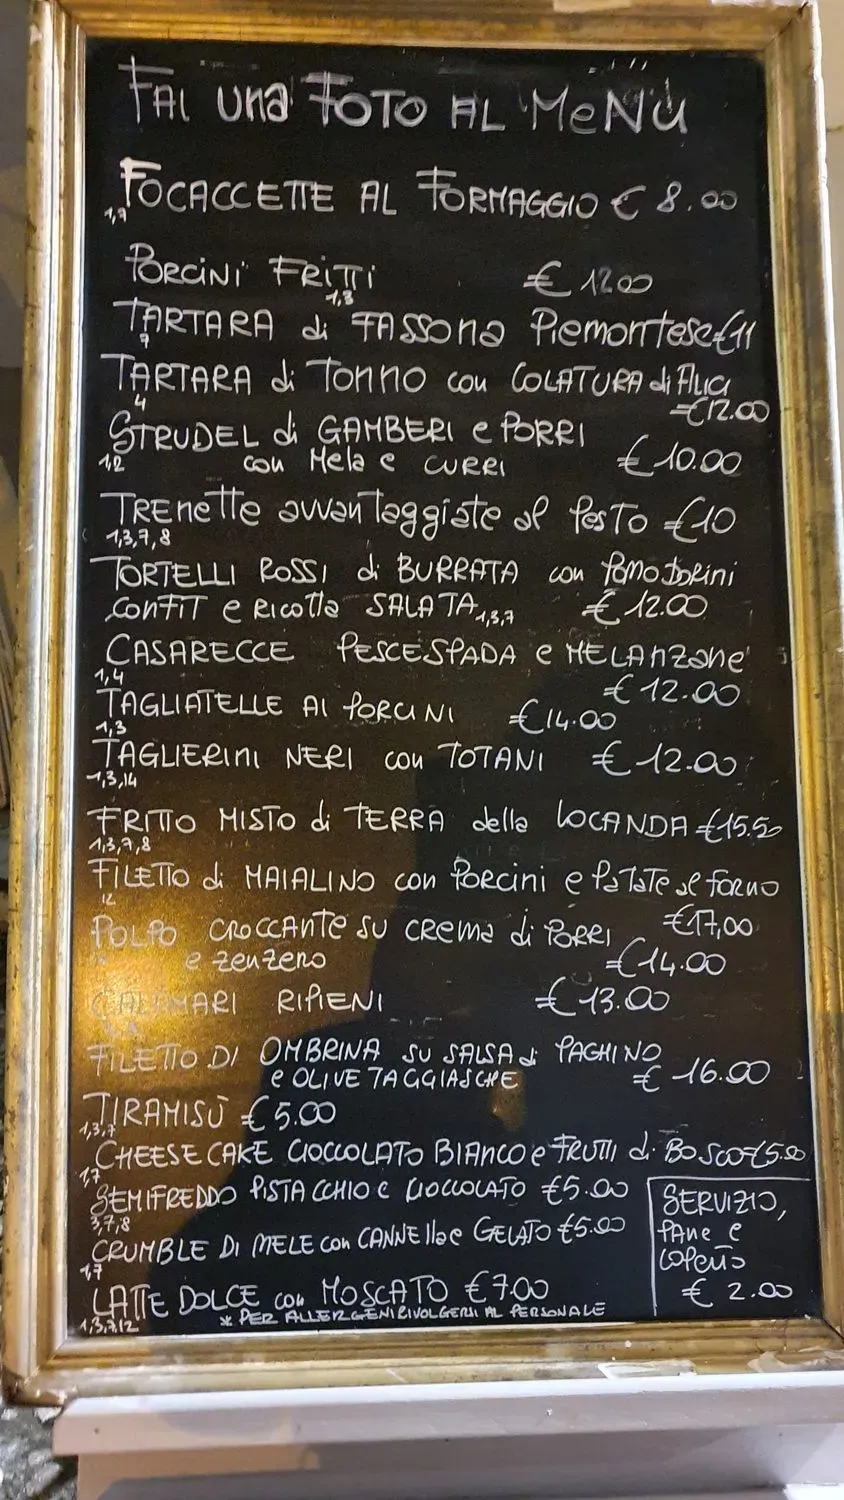 FAI una FOTO AL MeNù
FOCACCETTE AL FORMAGGIO € 8.00
1,7
PORCINI FRITTI € 12.00
1,3
TARTARA di FASSONA Piemontese €11
7
TARTARA di Tonno con COLATURA di Alici
4 €12.00
STRUDEL di GAMBERI e PORRI
1,2 con Mela e CURRI € 10.00
TRenette avvantaggiate al PesTo €10
1,3,7,8
TORTELLI ROSSI di BURRATA con PomoDorini
conFIT e RicoTTa SALATA 1,3,7 € 12.00
CASARECCE PESCESPADA e MELAnzane
1,4 € 12.00
TAGLIATELLE AI PORCINI €14.00
1,3
TAGLIERINI NERI con TOTANI € 12.00
1,3,14
FRITTO MISTO di TERRA della LOCANDA €15.50
1,3,7,8
FILETTO di MAIALINO con Porcini e PaTaTe al forno
12 €17,00
POLPO CROCCANTe SU CREMA di PORRI
e zenzero €14.00
CALAMARI RIPIENI € 13.00
FILETTO DI OMBRINA SU SALSA di PACHINO
e OLIVE TAGGIASCHE € 16.00
TIRAMISÙ € 5.00
1,3,7
CHEESE CAKE CIOCCOLATO BIANCO e FRUTTI di BOSCO €5.00
1,7
SEMIFREDDO PISTACCHIO e CIOCCOLATO €5.00
3,7,8
CRUMBLE DI MELE con CANNELLa e GELATO €5.00
1,7
LATTE DOLCE con MOSCATO €7.00
1,3,7,12
* PER ALLERGENI RIVOLGERSI AL PERSONALE
SERVIZIO,
PAne e
coperto
€ 2.00